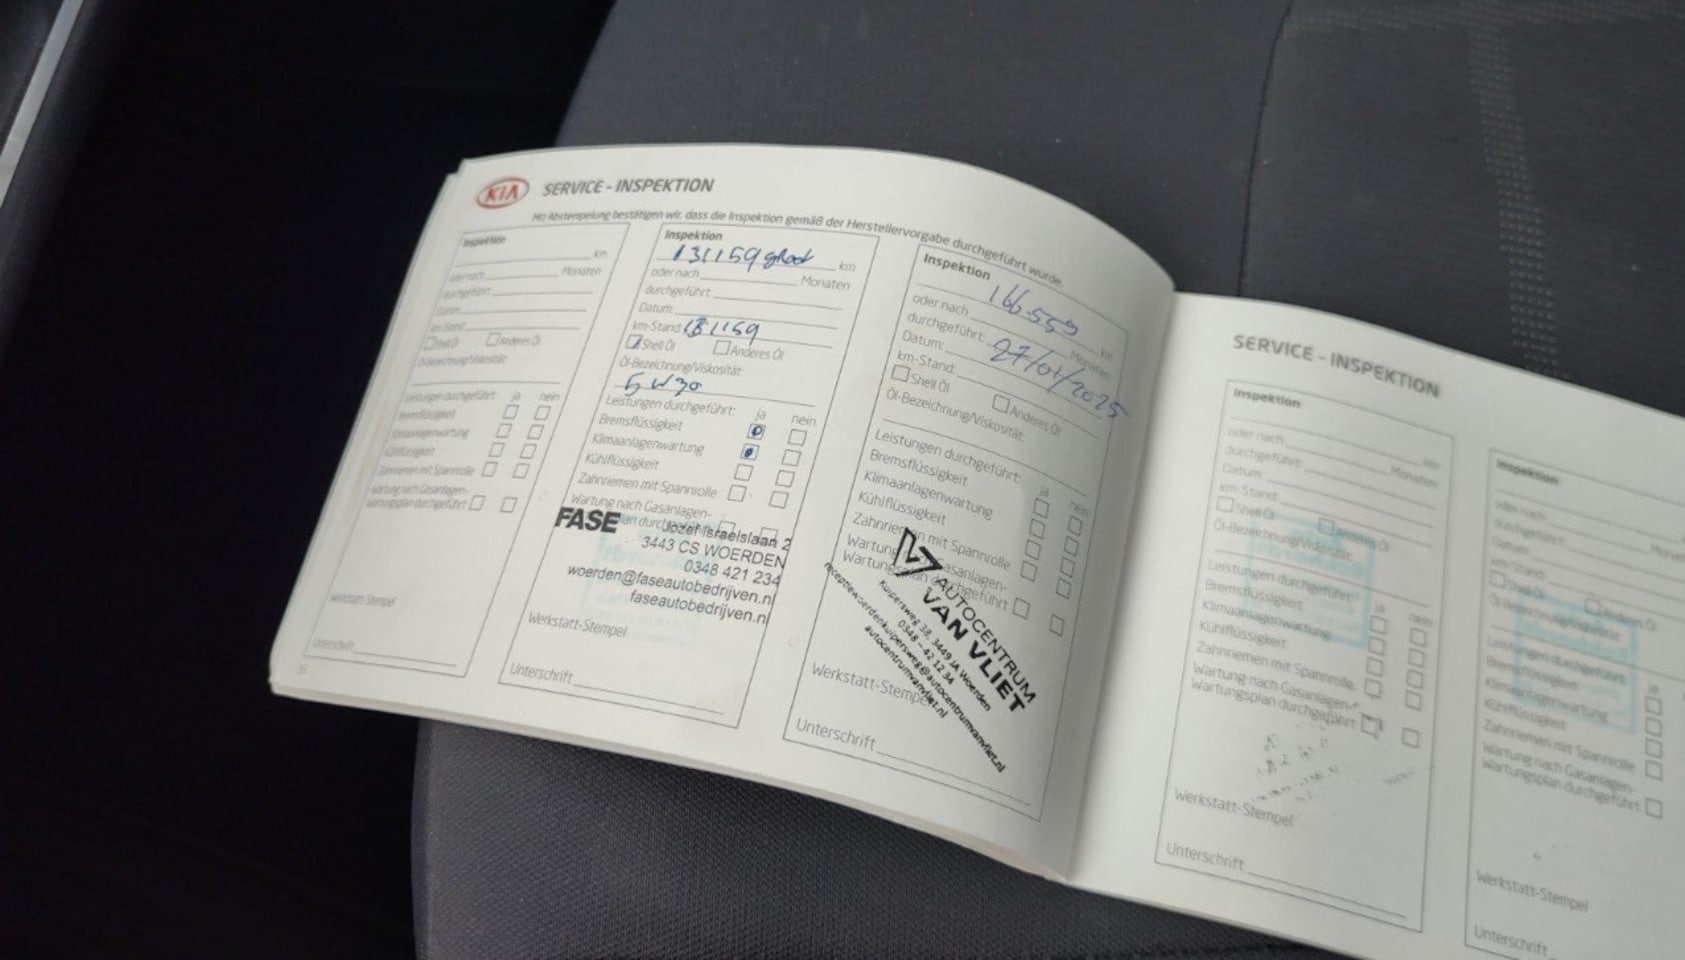 KIA SERVICE - INSPEKTION
Mit Abstempelung bestätigen wir, dass die Inspektion gemäß der Herstellervorgabe durchgeführt wurde.
Inspektion
km
oder nach Monaten
durchgeführt:
Datum:
km-Stand:
Shell Öl Anderes Öl
Öl-Bezeichnung/Viskosität:
Leistungen durchgeführt: ja nein
Bremsflüssigkeit
Klimaanlagenwartung
Kühlflüssigkeit
Zahnriemen mit Spannrolle
Wartung nach Gasanlagen-
Wartungsplan durchgeführt
Werkstatt-Stempel
Unterschrift
Inspektion
131159 groot km
oder nach Monaten
durchgeführt:
Datum:
km-Stand: 131159
Shell Öl Anderes Öl
Öl-Bezeichnung/Viskosität:
5W30
Leistungen durchgeführt: ja nein
Bremsflüssigkeit
Klimaanlagenwartung
Kühlflüssigkeit
Zahnriemen mit Spannrolle
Wartung nach Gasanlagen-
FASE
Jozef Israelslaan 2
3443 CS WOERDEN
0348 421 234
woerden@faseautobedrijven.nl
faseautobedrijven.nl
Werkstatt-Stempel
Unterschrift
Inspektion
166559 km
oder nach Monaten
durchgeführt: 27/01/2025
Datum:
km-Stand:
Shell Öl Anderes Öl
Öl-Bezeichnung/Viskosität:
Leistungen durchgeführt: ja nein
Bremsflüssigkeit
Klimaanlagenwartung
Kühlflüssigkeit
Zahnriemen mit Spannrolle
Wartung nach Gasanlagen-
Wartungsplan durchgeführt
AUTOCENTRUM
VAN VLIET
Kuipersweg 38, 3449 JA Woerden
0348 - 42 12 34
receptiewoerdenkuipersweg@autocentrumvanvliet.nl
autocentrumvanvliet.nl
Werkstatt-Stempel
Unterschrift
SERVICE - INSPEKTION
Inspektion
km
oder nach Monaten
durchgeführt:
Datum:
km-Stand:
Shell Öl Anderes Öl
Öl-Bezeichnung/Viskosität:
Leistungen durchgeführt: ja nein
Bremsflüssigkeit
Klimaanlagenwartung
Kühlflüssigkeit
Zahnriemen mit Spannrolle
Wartung nach Gasanlagen-
Wartungsplan durchgeführt
Werkstatt-Stempel
Unterschrift
Inspektion
oder nach
durchgeführt:
Datum:
km-Stand:
Shell Öl Anderes Öl
Öl-Bezeichnung/Viskosität:
Leistungen durchgeführt: ja
Bremsflüssigkeit
Klimaanlagenwartung
Kühlflüssigkeit
Zahnriemen mit Spannrolle
Wartung nach Gasanlagen-
Wartungsplan durchgeführt
Werkstatt-Stempel
Unterschrift